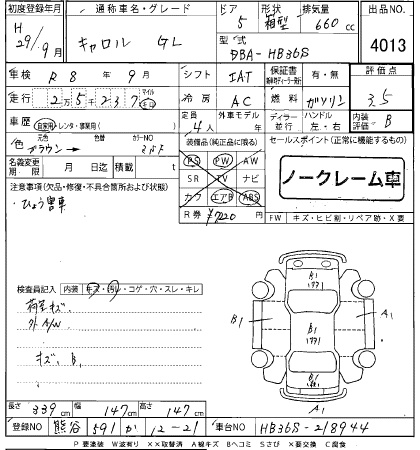 初度登録年月 通称車名・グレード ドア 形状 排気量 出品NO.
H 29/9月 キャロル GL 5 箱型 660 cc 4013
型式 DBA-HB36S
車検 R 8年 9月 シフト IAT 保証書 有・無 評価点
走行 2万5237 マイル キロ 冷房 AC 燃料 ガソリン 3.5
車歴 自家用・レンタ・事業用( ) 定員 4人 外車モデル ディーラー 並行 ハンドル 左・右 内装評価 B
色 元色 ブラウン 色替 カラーNO
装備品(純正品に限る) セールスポイント(正常に機能するもの)
名義変更期限 月 日迄 積載 t
PS PW AW
SR TV ナビ
カワ エアB ABS
ノークレーム車
注意事項(欠品・修復・不具合箇所および状態)
ひょう害車
R券 ¥7220
FW キズ・ヒビ割・リペア跡・X要
検査員記入 内装 キズ・汚レ・コゲ・穴・スレ・キレ
荷室キズ
外A/W
キズ、B1
B1
B1
B1
A1
A1
長さ 339cm 幅 147cm 高さ 147cm
登録NO 熊谷 591 か 12-21 車台NO HB36S-218944
P 要塗装 W波有り ××取替済 A線キズ Bヘコミ Sさび ×要交換 C腐食